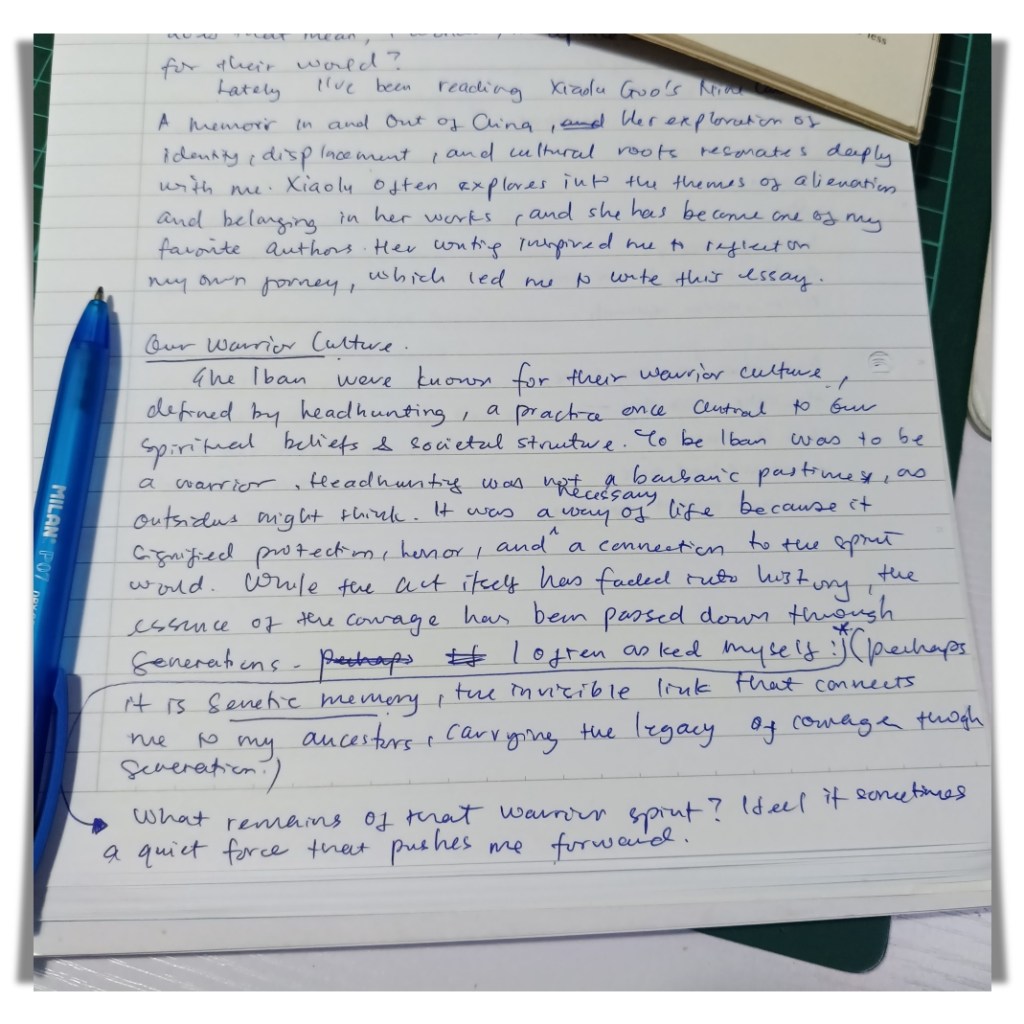 for their world?
Lately I've been reading Xiaolu Guo's Nine
A memoir in and out of China, and Her exploration of
identity, displacement, and cultural roots resonates deeply
with me. Xiaolu often explores into the themes of alienation
and belonging in her works, and she has become one of my
favorite authors. Her writing inspired me to reflect on
my own jorney, which led me to write this essay.
Our Warrior Culture.
The Iban were known for their warrior culture,
defined by headhunting, a practice once central to our
spiritual beliefs & societal structure. To be Iban was to be
a warrior. Headhunting was not a barbaric pastimes, as
necessary
outsiders might think. It was a way of life because it
signified protection, honor, and a connection to the spirit
world. While the act itself has faded into history, the
essence of the courage has been passed down through
generations. Perhaps If I often asked myself :)* (perhaps
it is genetic memory, the invicible link that connects
me to my ancestors, carrying the legacy of courage though
generation.)
What remains of that warrior spirit? I feel it sometimes
a quiet force that pushes me forward.
MILAN P07
less